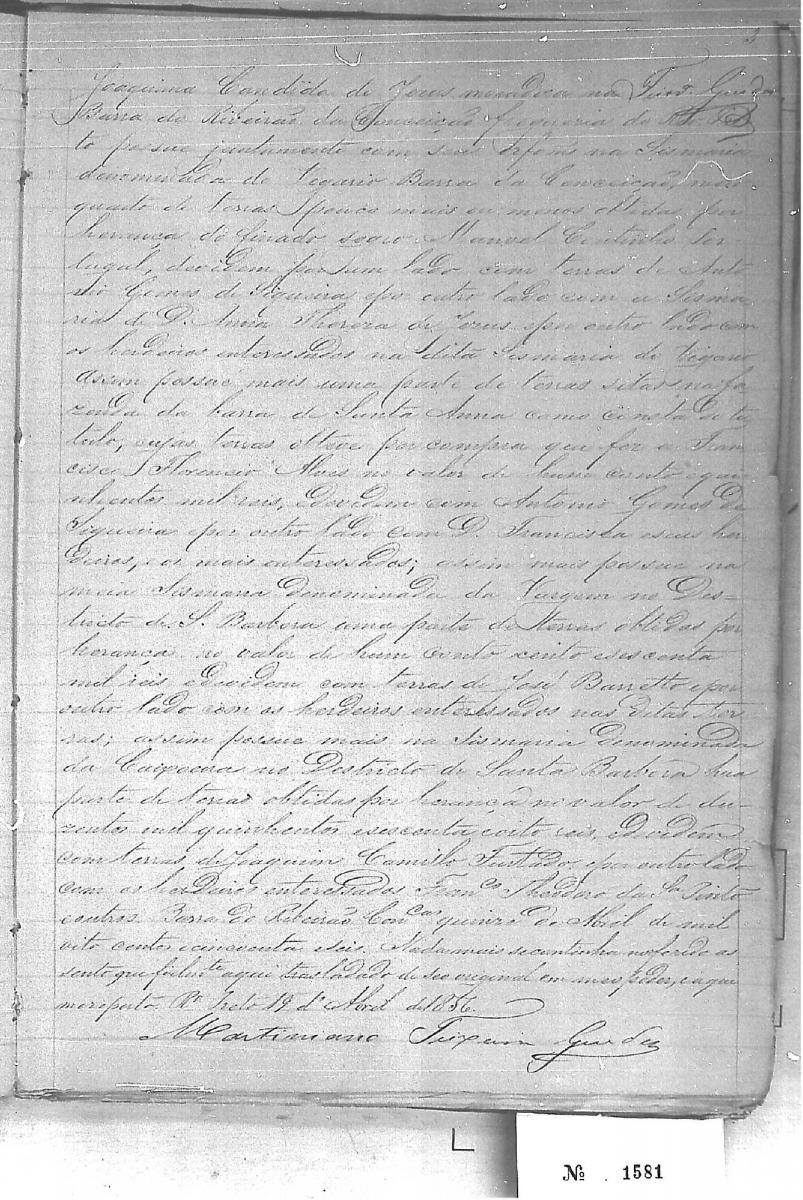 Joaquina Candida de Jesus moradora na
Barra do Ribeirão da Conceição freguesia do Rio Pre
to possue juntamente com seus Orfons na Sismaria
denominada do Vigario Barra da Conceição, meio
quarto de terras pouco mais ou menos obtidas por
herança do finado sogro Manoel Coutinho Por-
tugal, devidem por um lado com terras de Anto
nio Gomes de Siqueira e por outro lado com a Sisma
ria de D. Anna Thereza de Jesus e por outro lado com
os herdeiros enteressados na dita Sismaria do Vigario
Assim possue mais uma parte de terras sitas na fa
zenda da barra de Santa Anna como consta do ti
tulo, cujas terras obteve por compra que fes a Fran
cisco Florencio Alves no valor de hum conto e qui
nhentos mil reis, e devidem com Antonio Gomes de
Siqueira e por outro lado com D. Francisca e seus her
deiros, e os mais enteressados; assim mais possue na
meia Sismaria denominada da Vargem no Des-
tricto de S. Barbora uma parte de terras obtidas por
herança no valor de hum conto cento e sescenta
mil reis e devidem com terras de José Barretto e por
outro lado com os herdeiros enteressados nas ditas ter
ras; assim possue mais na Sismaria denominada
da no Destricto de Santa Barbora hua
parte de terras obtidas por herança no valor de du-
zentos mil quinhentos e sescenta e oito reis, e devidem
com terras de Joaquim Camillo Furtado e por outro lado
com os herdeiros enteressados Franco Theodoro da Sa Pinto
e outros. Barra do Ribeirão Conçam quinze de Abril de mil
oito centos e cincoenta e seis. Nada mais se continha no referido as
sento que fielmte aqui trasladado do seo original em meo poder, e a que
me reporto. Ro Preto 19 d'Abril de 1856.
Martiniano Teixeira Guedes
No. 1581